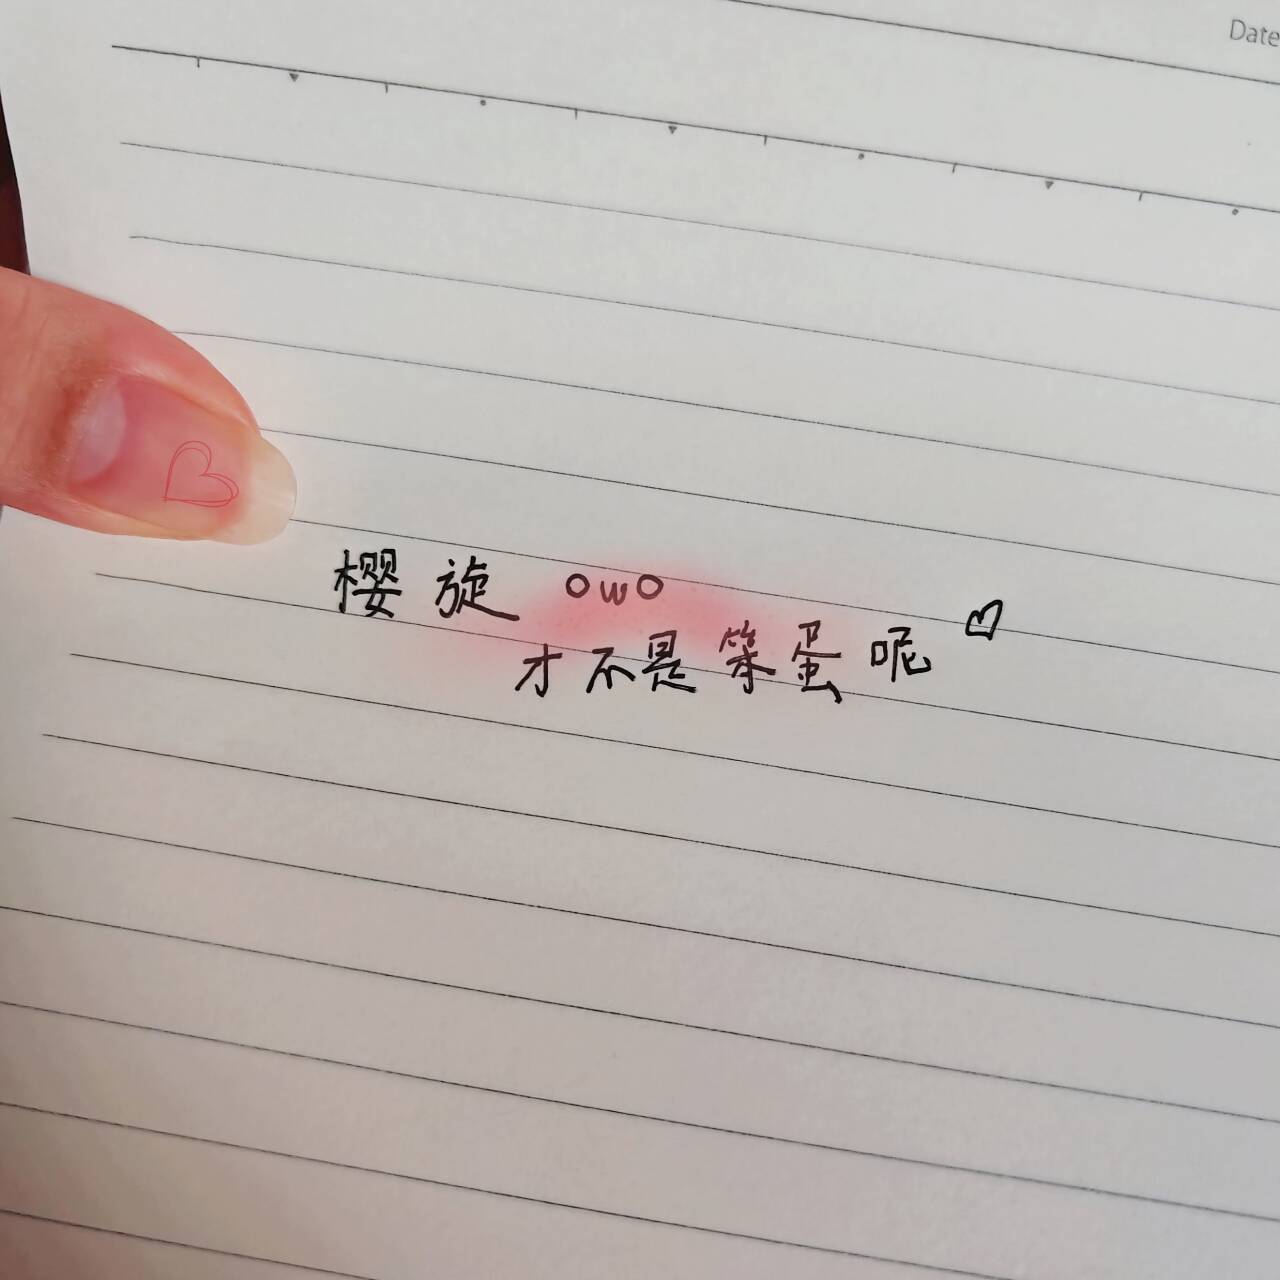 Date
樱旋 owo
才不是笨蛋呢♡